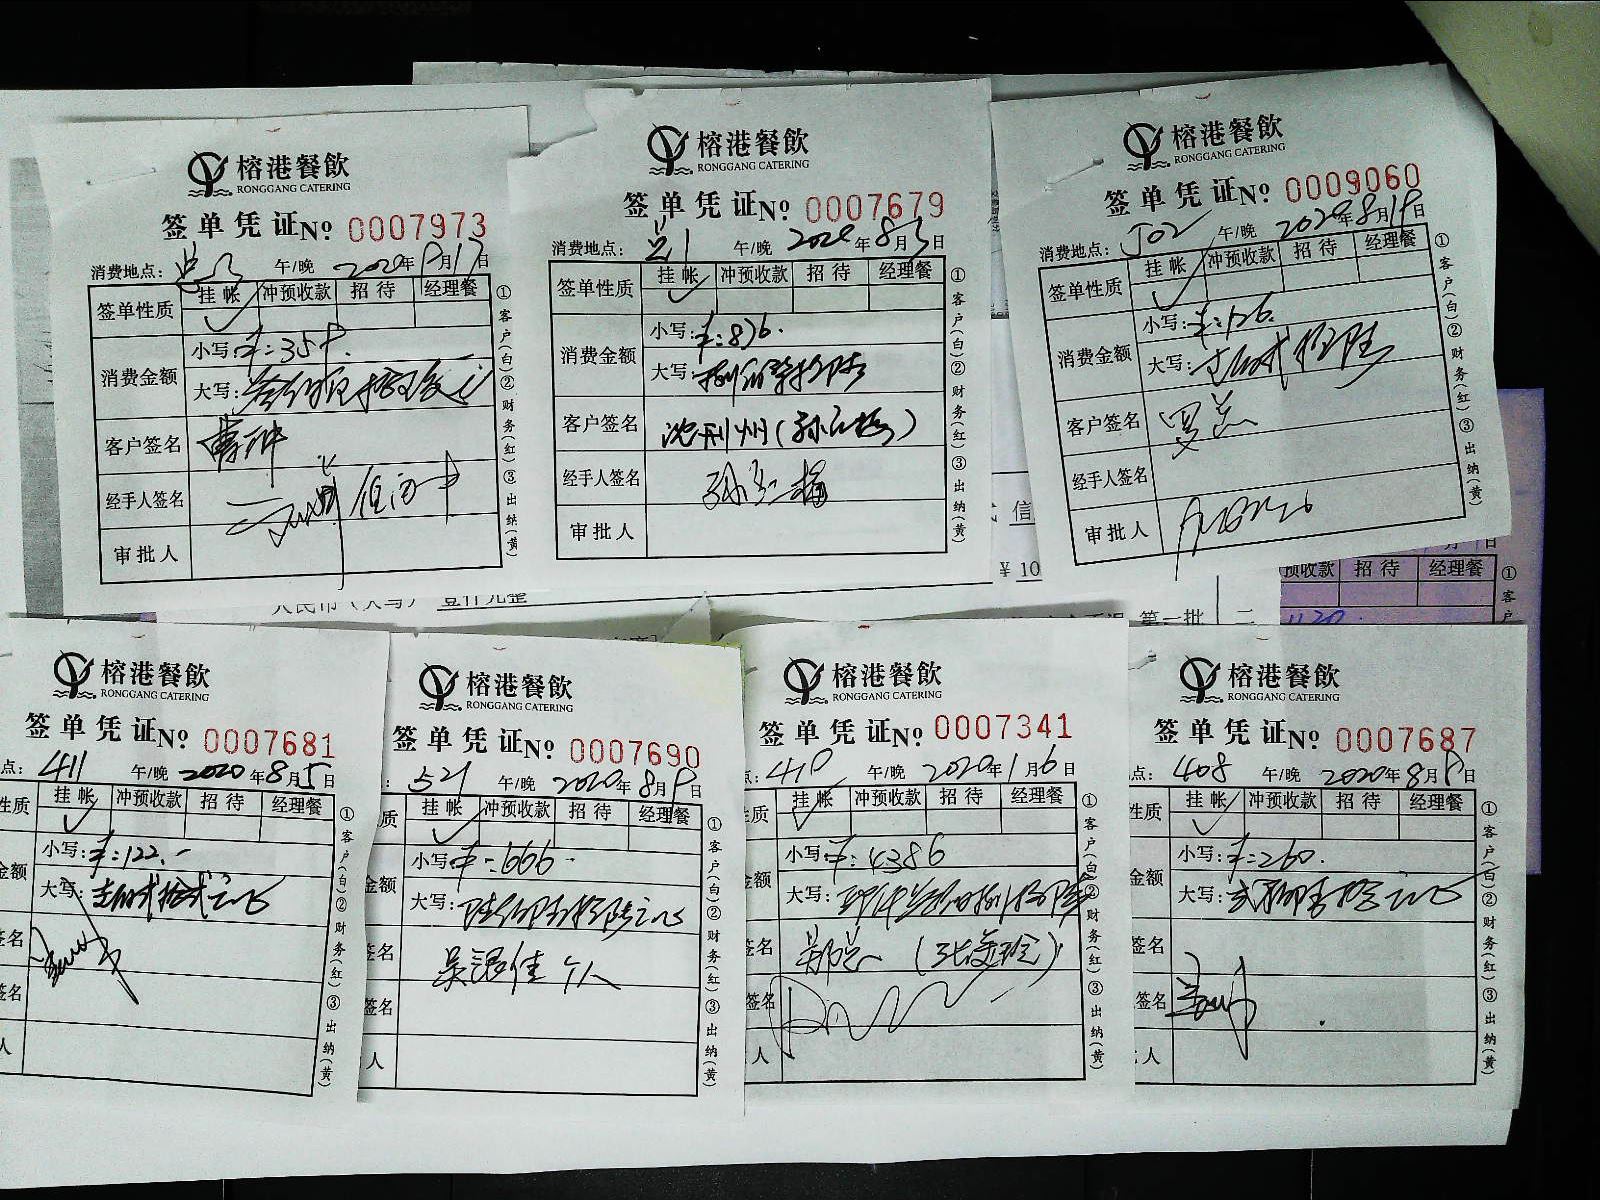 榕港餐飲
RONGGANG CATERING
签单凭证No 0007973
消费地点: 午/晚 2020年8月17日
签单性质 挂帐 冲预收款 招待 经理餐
✓
消费金额 小写: ¥:358.
大写:
客户签名
经手人签名
审批人
①客户(白)②财务(红)③出纳(黄)
榕港餐飲
RONGGANG CATERING
签单凭证No 0007679
消费地点: 午/晚 2020年8月5日
签单性质 挂帐 冲预收款 招待 经理餐
✓
消费金额 小写: ¥:876.
大写: 捌佰柒拾陆
客户签名 沈荆州
经手人签名
审批人
①客户(白)②财务(红)③出纳(黄)
榕港餐飲
RONGGANG CATERING
签单凭证No 0009060
消费地点: 502 午/晚 2020年8月19日
签单性质 挂帐 冲预收款 招待 经理餐
✓
消费金额 小写: ¥:126.
大写: 壹佰贰拾陆
客户签名 罗总
经手人签名
审批人
①客户(白)②财务(红)③出纳(黄)
信
月 日
¥ 10
预收款 招待 经理餐
①客户
人民币(大写) 壹仟元整
第一批 二
1120.
榕港餐飲
RONGGANG CATERING
签单凭证No 0007681
点: 411 午/晚 2020年8月5日
性质 挂帐 冲预收款 招待 经理餐
✓
金额 小写: ¥:122.-
大写: 壹佰贰拾贰元正
签名
签名
人
①客户(白)②财务(红)③出纳(黄)
榕港餐飲
RONGGANG CATERING
签单凭证No 0007690
: 521 午/晚 2020年8月8日
质 挂帐 冲预收款 招待 经理餐
✓
金额 小写: ¥:666.-
大写: 陆佰陆拾陆元正
签名 吴 佳 个人
签名
人
①客户(白)②财务(红)③出纳(黄)
榕港餐飲
RONGGANG CATERING
签单凭证No 0007341
点: 410 午/晚 2020年1月6日
性质 挂帐 冲预收款 招待 经理餐
✓
金额 小写: ¥:4386
大写: 肆仟叁佰捌拾陆
签名 郑总
签名
人
①客户(白)②财务(红)③出纳(黄)
榕港餐飲
RONGGANG CATERING
签单凭证No 0007687
点: 408 午/晚 2020年8月8日
性质 挂帐 冲预收款 招待 经理餐
✓
金额 小写: ¥:260.
大写: 贰佰陆拾元正
签名
签名
人
①客户(白)②财务(红)③出纳(黄)